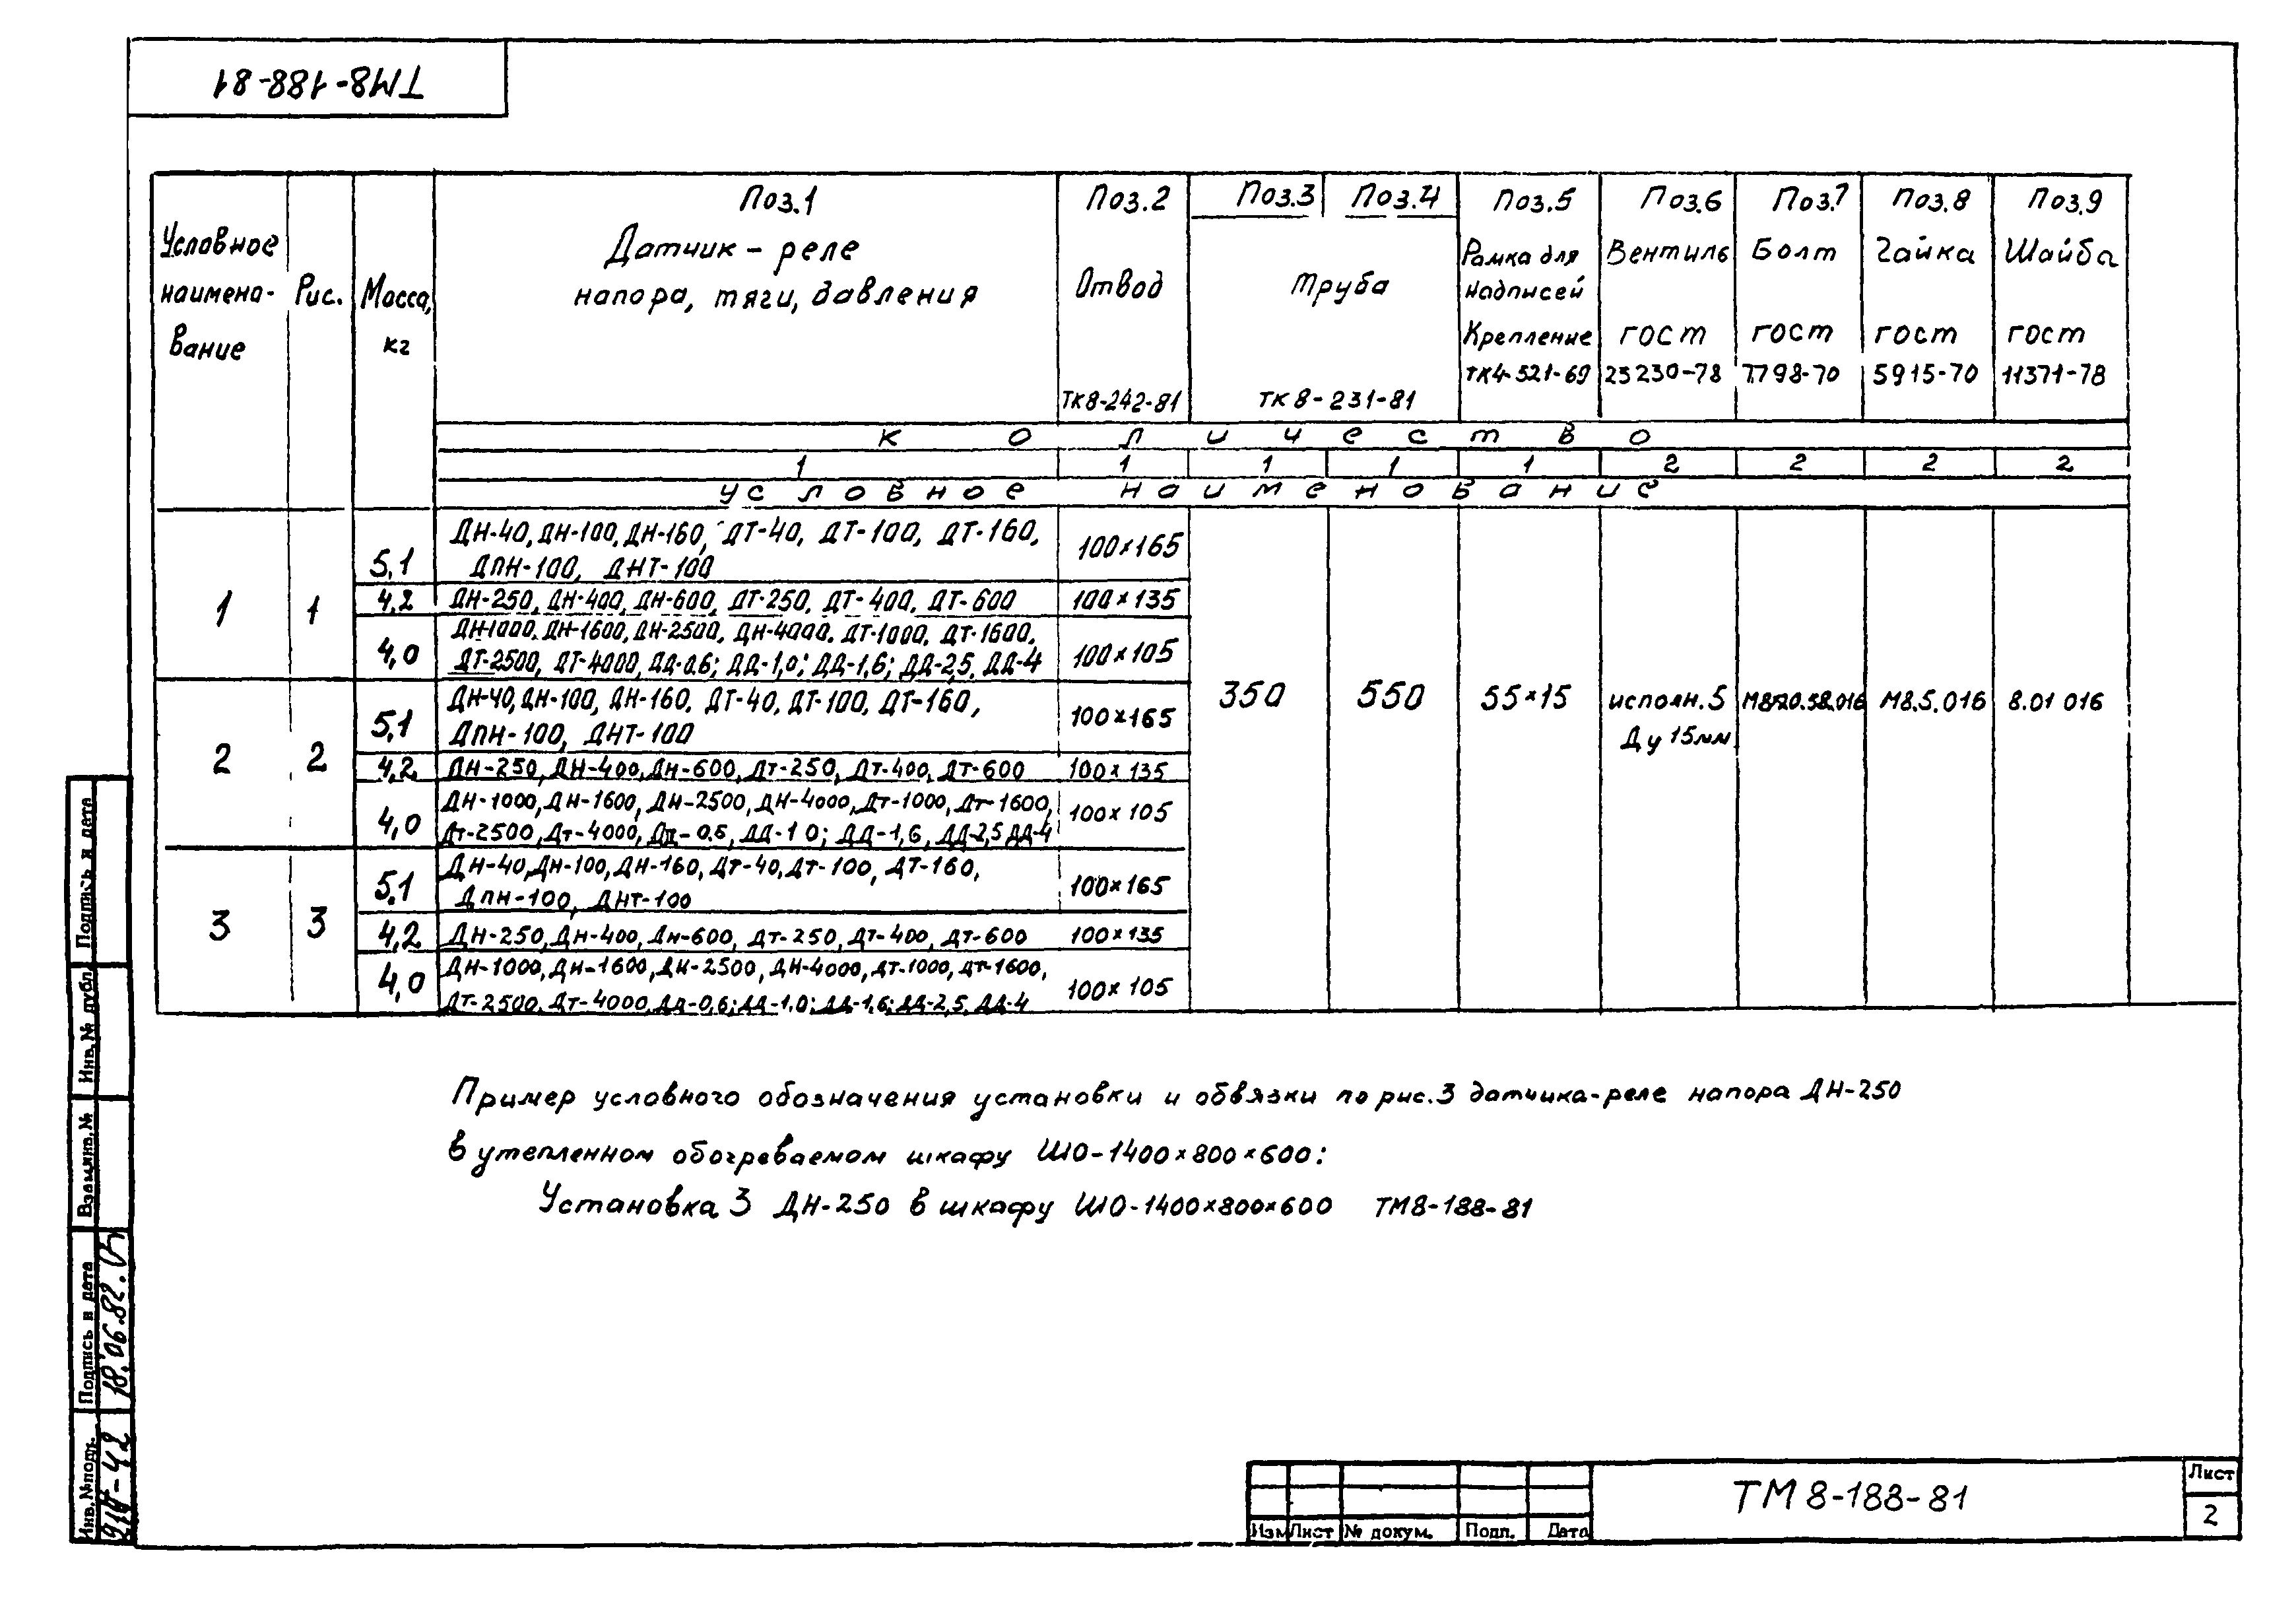 ТМ8-188-81
Условное наимено-вание
Рис.
Масса, кг
Поз.1
Датчик - реле
напора, тяги, давления
Поз.2
Отвод
ТК8-242-81
Поз.3 Поз.4
Труба
ТК8-231-81
Поз.5
Рамка для
надписей
Крепление
ТК4-521-69
Поз.6
Вентиль
ГОСТ
23230-78
Поз.7
Болт
ГОСТ
7798-70
Поз.8
Гайка
ГОСТ
5915-70
Поз.9
Шайба
ГОСТ
11371-78
Количество
1 1 1 1 1 2 2 2 2
условное наименование
1 1
5,1 ДН-40, ДН-100, ДН-160, ДТ-40, ДТ-100, ДТ-160, 100×165
ДПН-100, ДНТ-100
4,2 ДН-250, ДН-400, ДН-600, ДТ-250, ДТ-400, ДТ-600 100×135
4,0 ДН-1000, ДН-1600, ДН-2500, ДН-4000, ДТ-1000, ДТ-1600, 100×105
ДТ-2500, ДТ-4000, ДД-0,6; ДД-1,0; ДД-1,6; ДД-2,5, ДД-4
350 550 55×15 исполн.5 М8×20.58.016 М8.5.016 8.01 016
Ду 15мм
2 2
5,1 ДН-40, ДН-100, ДН-160, ДТ-40, ДТ-100, ДТ-160, 100×165
ДПН-100, ДНТ-100
4,2 ДН-250, ДН-400, ДН-600, ДТ-250, ДТ-400, ДТ-600 100×135
4,0 ДН-1000, ДН-1600, ДН-2500, ДН-4000, ДТ-1000, ДТ-1600, 100×105
ДТ-2500, ДТ-4000, ДД-0,6, ДД-1 0; ДД-1,6, ДД-2,5 ДД-4
3 3
5,1 ДН-40, ДН-100, ДН-160, ДТ-40, ДТ-100, ДТ-160, 100×165
ДПН-100, ДНТ-100
4,2 ДН-250, ДН-400, ДН-600, ДТ-250, ДТ-400, ДТ-600 100×135
4,0 ДН-1000, ДН-1600, ДН-2500, ДН-4000, ДТ-1000, ДТ-1600, 100×105
ДТ-2500, ДТ-4000, ДД-0,6; ДД-1,0; ДД-1,6; ДД-2,5, ДД-4
Пример условного обозначения установки и обвязки по рис.3 датчика-реле напора ДН-250
в утепленном обогреваемом шкафу ШО-1400×800×600:
Установка 3 ДН-250 в шкафу ШО-1400×800×600 ТМ8-188-81
Подпись и дата
Инв. № дубл.
Взам.инв. №
Подпись и дата
18.06.82.
Инв. №подл.
Изм Лист № докум. Подп. Дата
ТМ8-188-81
Лист
2